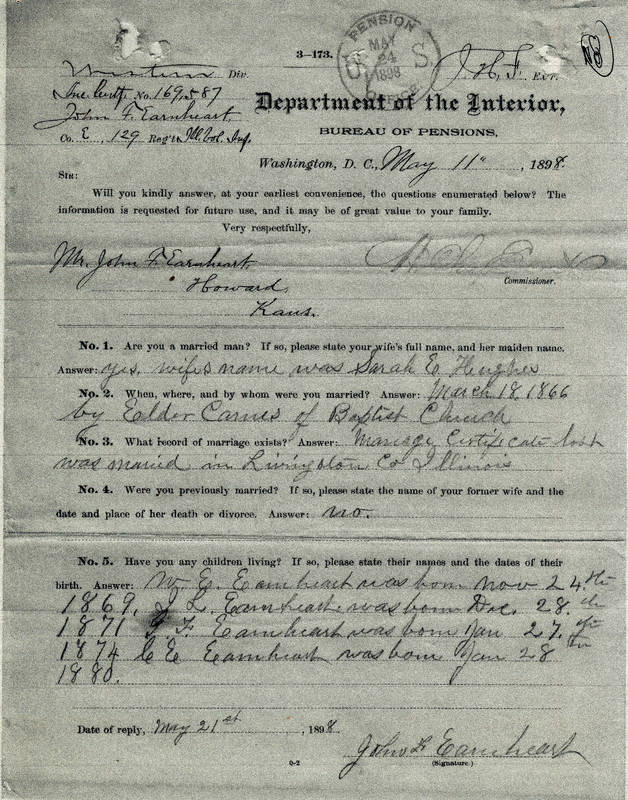 PENSION
MAY
24
1898
OFFICE
U S
3—173.
J. H. F. Ex'r.
Western Div.
Inv. Certf. No. 169,587
John F. Earnheart,
Co. E, 129 Reg't Ill. Vol. Inf.
Department of the Interior,
BUREAU OF PENSIONS,
Washington, D. C., May 11", 1898.
SIR:
Will you kindly answer, at your earliest convenience, the questions enumerated below? The
information is requested for future use, and it may be of great value to your family.
Very respectfully,
Mr. John F. Earnheart,
Howard,
Kans.
Commissioner.
No. 1. Are you a married man? If so, please state your wife's full name, and her maiden name.
Answer: yes, wifes name was Sarah E. Hughes
No. 2. When, where, and by whom were you married? Answer: March 18, 1866
by Elder Carnes of Baptist Church
No. 3. What record of marriage exists? Answer: Marriage Certificate lost
was maried in Livingston Co Illinois
No. 4. Were you previously married? If so, please state the name of your former wife and the
date and place of her death or divorce. Answer: no.
No. 5. Have you any children living? If so, please state their names and the dates of their
birth. Answer: W. E. Earnheart was born Nov 24th
1869, J L. Earnheart was born Dec. 28th
1871 G F. Earnheart was born Jan 27th
1874 C E Earnheart was born Jan 28
1880.
Date of reply, May 21st, 1898.
John F Earnheart
(Signature.)
0-2